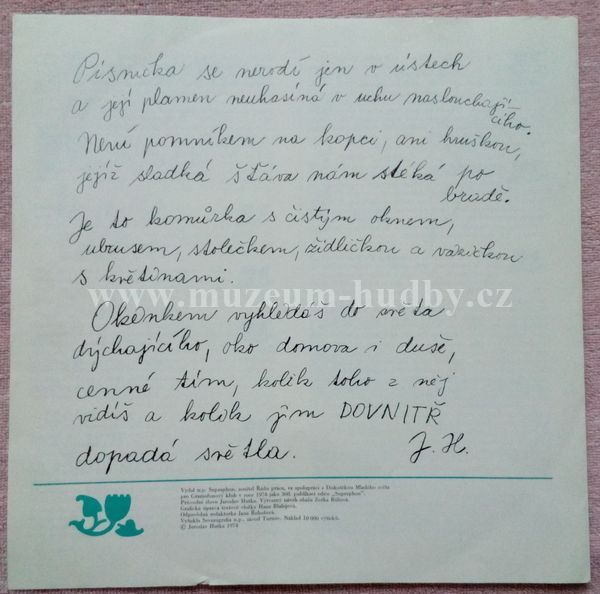 Písnička se nerodí jen v ústech
a její plamen neuhasíná v uchu naslouchají-
cího.
Není pomníkem na kopci, ani hruškou,
jejíž sladká šťáva nám stéká po
bradě.
Je to komůrka s čistým oknem,
ubrusem, stolečkem, židličkou a vázičkou
s květinami.
www.muzeum-hudby.cz
Okénkem vyhlédáš do světa
dýchajícího, oko domova i duše,
cenné tím, kolik toho z něj
vidíš a kolik jím DOVNITŘ
dopadá světla. J. H.
Vydal n.p. Supraphon, nositel Řádu práce, ve spolupráci s Diskotékou Mladého světa
pro Gramofonový klub v roce 1974 jako 360. publikaci edice „Supraphon“.
Průvodní slovo Jaroslav Hutka. Výtvarný návrh obalu Zorka Růžová.
Grafická úprava textové složky Hana Blahejová.
Odpovědná redaktorka Jana
Vytiskla Severografia n.p., závod Turnov. Náklad 10 000 výtisků.
© Jaroslav Hutka 1974